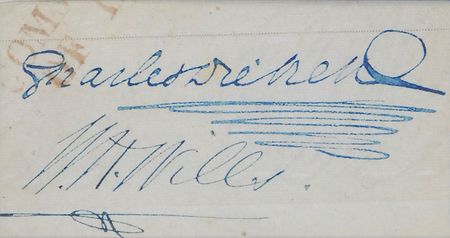 Charles Dickens
W. H. Wills.